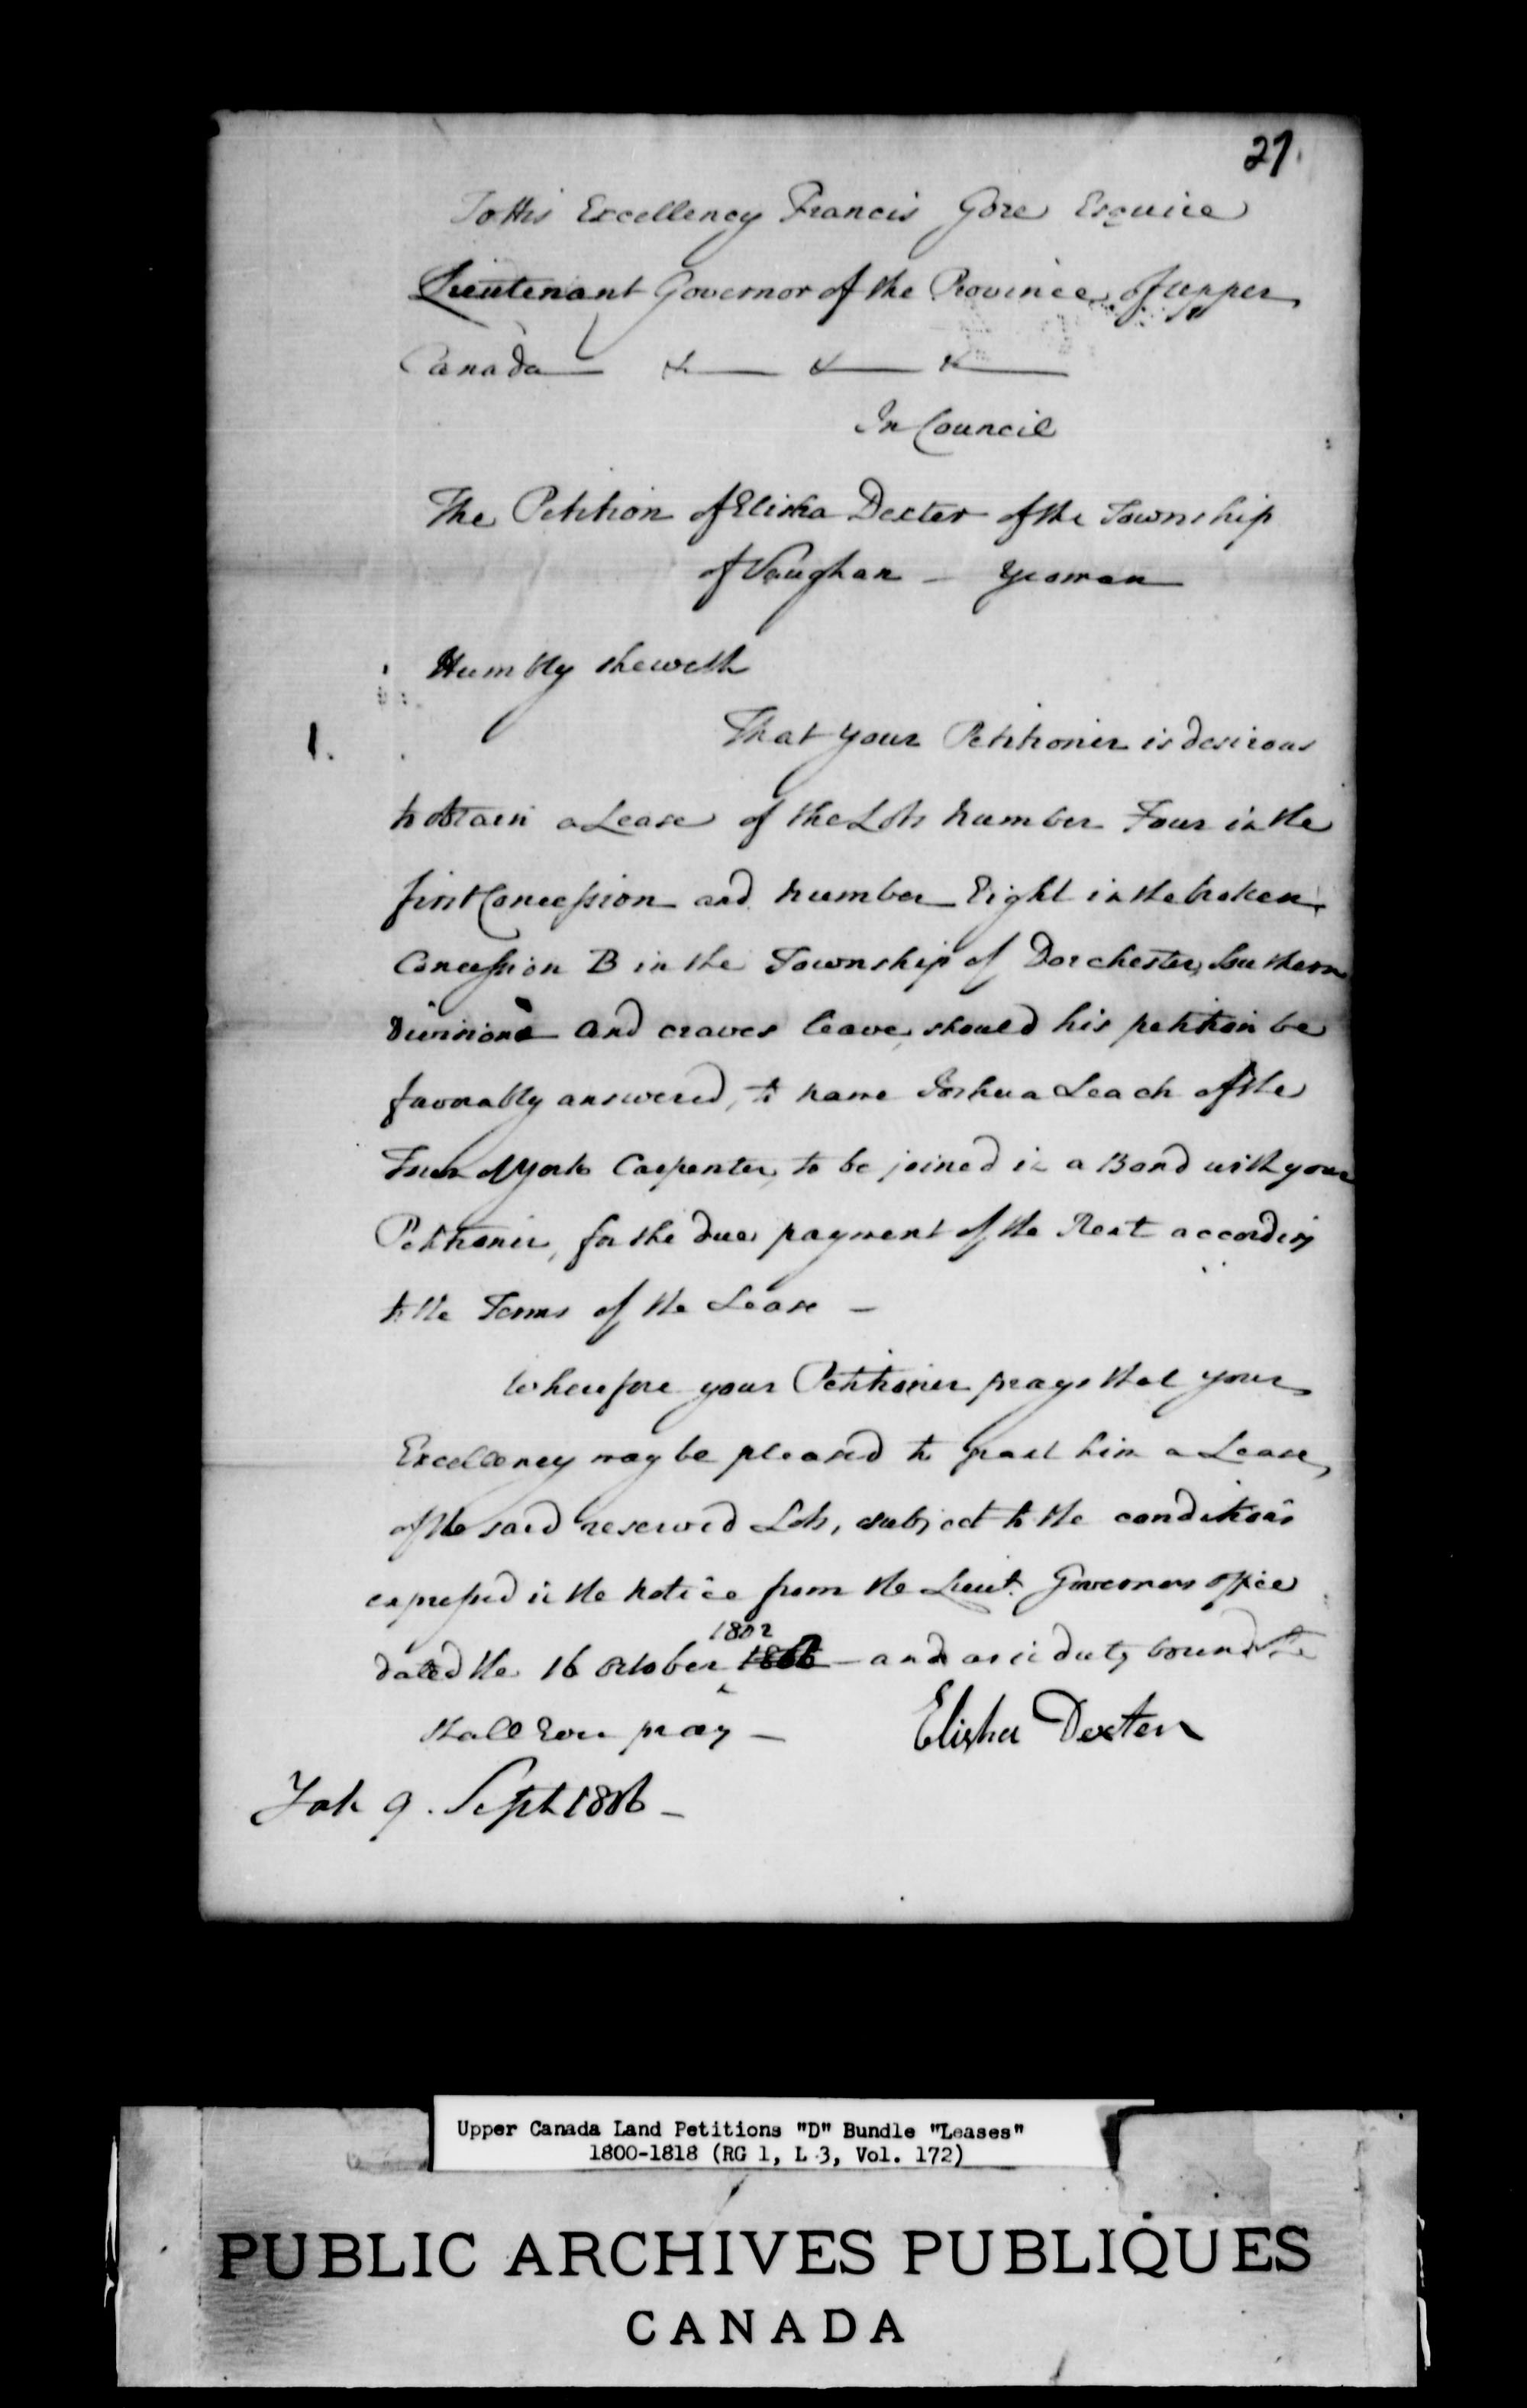 27.
To His Excellency Francis Gore Esquire
Lieutenant Governor of the Province of upper
Canada — &— &— &—
In Council
The Petition of Elisha Dexter of the Township
of Vaughan — Yeoman
Humbly sheweth
1.
That your Petitioner is desirous
to obtain a Lease of the Lots number Four in the
first Concession and number Eight in the broken
Concession B in the Township of Dorchester, Southern
Division and craves leave, should his petition be
favorably answered, to name Joshua Leach of the
Town of York Carpenter, to be joined in a Bond with your
Petitioner, for the due payment of the Rent according
to the Terms of the Lease —
Wherefore your Petitioner prays that your
Excellency may be pleased to grant him a Lease,
of the said reserved Lots, subject to the conditions
expressed in the notice from the Lieut. Governors office
1802
dated the 16 October 1806 — and as in duty bound
shall Ever pray —
Elisha Dexter
York 9. Sept 1806 —
Upper Canada Land Petitions "D" Bundle "Leases"
1800-1818 (RG 1, L 3, Vol. 172)
PUBLIC ARCHIVES PUBLIQUES
CANADA